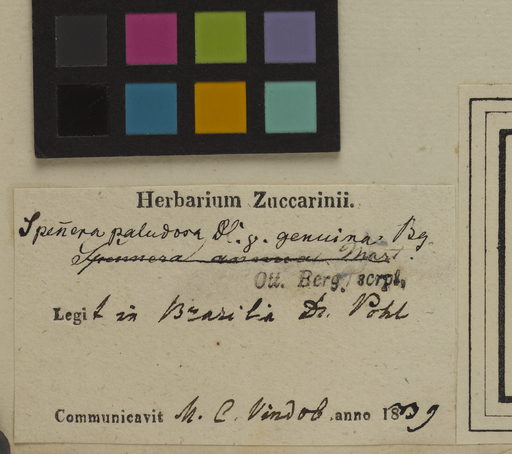 Herbarium Zuccarinii.
Speñera paludosa Dl. γ. genuina. Bg.
Spennera Mart.
Ott. Berg. scrpt.
Legit in Brazilia Dr. Pohl
Communicavit M. C. Vindob. anno 1839